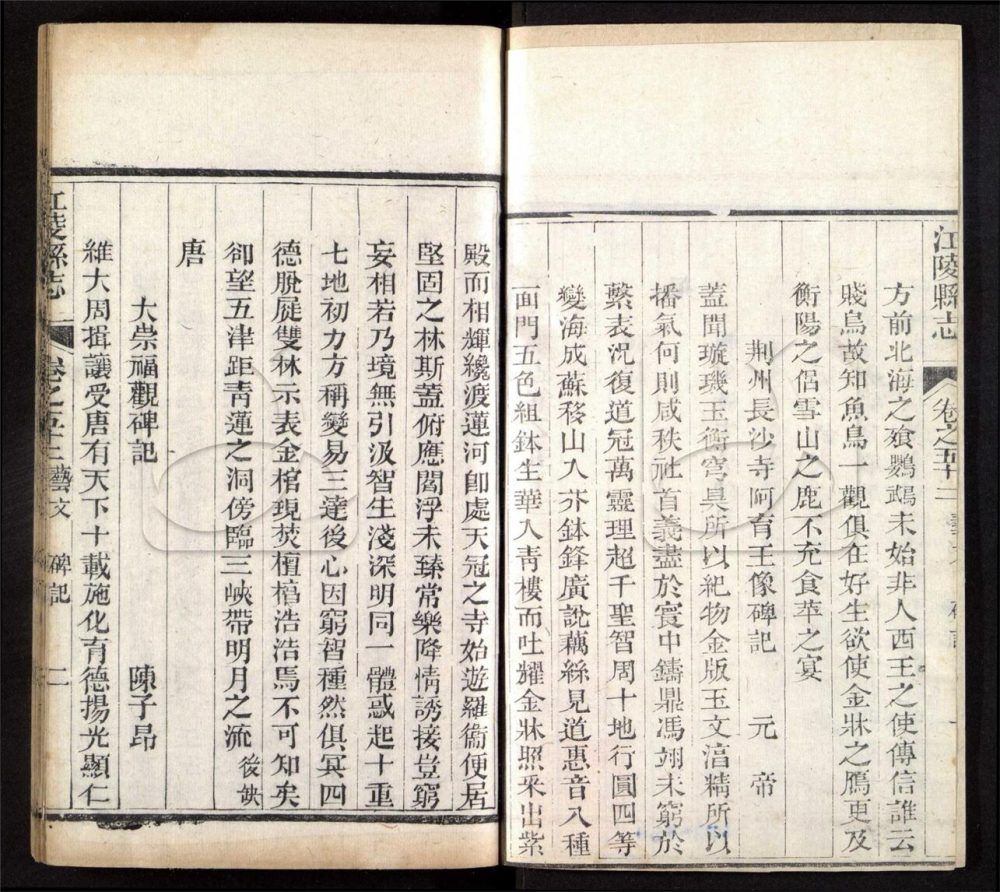 江陵縣志 卷之五十二
方前北海之飱鸚鵡未始非人西王之使傳信誰云
賤鳥故知魚鳥一觀俱在好生欲使金牀之鴈更及
衡陽之侶雪山之鹿不充食苹之宴
荊州長沙寺阿育王像碑記 元帝
蓋聞璇璣玉衡穹具所以紀物金版玉文淯精所以
播氣何則咸秩社首義盡於寰中鑄鼎馮翊未窮於
繫表況復道冠萬靈理超千聖智周十地行圓四等
變海成蘇移山入芥鉢鋒廣說藕絲見道惠音八種
面門五色組鉢生華入靑樓而吐耀金牀照釆出紫
殿而相輝纔渡蓮河卽處天冠之寺始遊羅衞便居
堅固之林斯蓋俯應閻浮未臻常樂降情誘接豈窮
妄相若乃境無引汲智生淺深明同一體惑起十重
七地初力方稱變易三達後心因窮智種然俱冥四
德脫屣雙林示表金棺現焚檀槁浩浩焉不可知矣
卻望五津距靑蓮之洞傍臨三峽帶明月之流 後缺
唐
大崇福觀碑記 陳子昂
維大周揖讓受唐有天下十載施化育德揚光顯仁
江陵縣志 卷之五十二 藝文 碑記 二